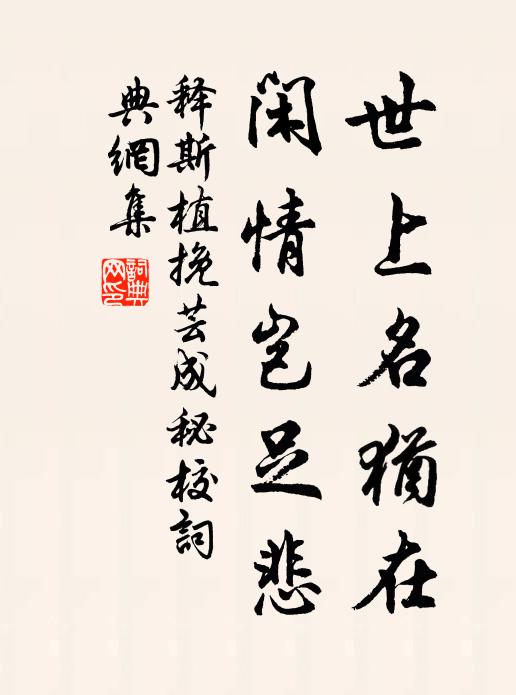 世上名猶在
閑情岂足悲
释斯植挽芸成秘校詞
典網集
詞典
网印